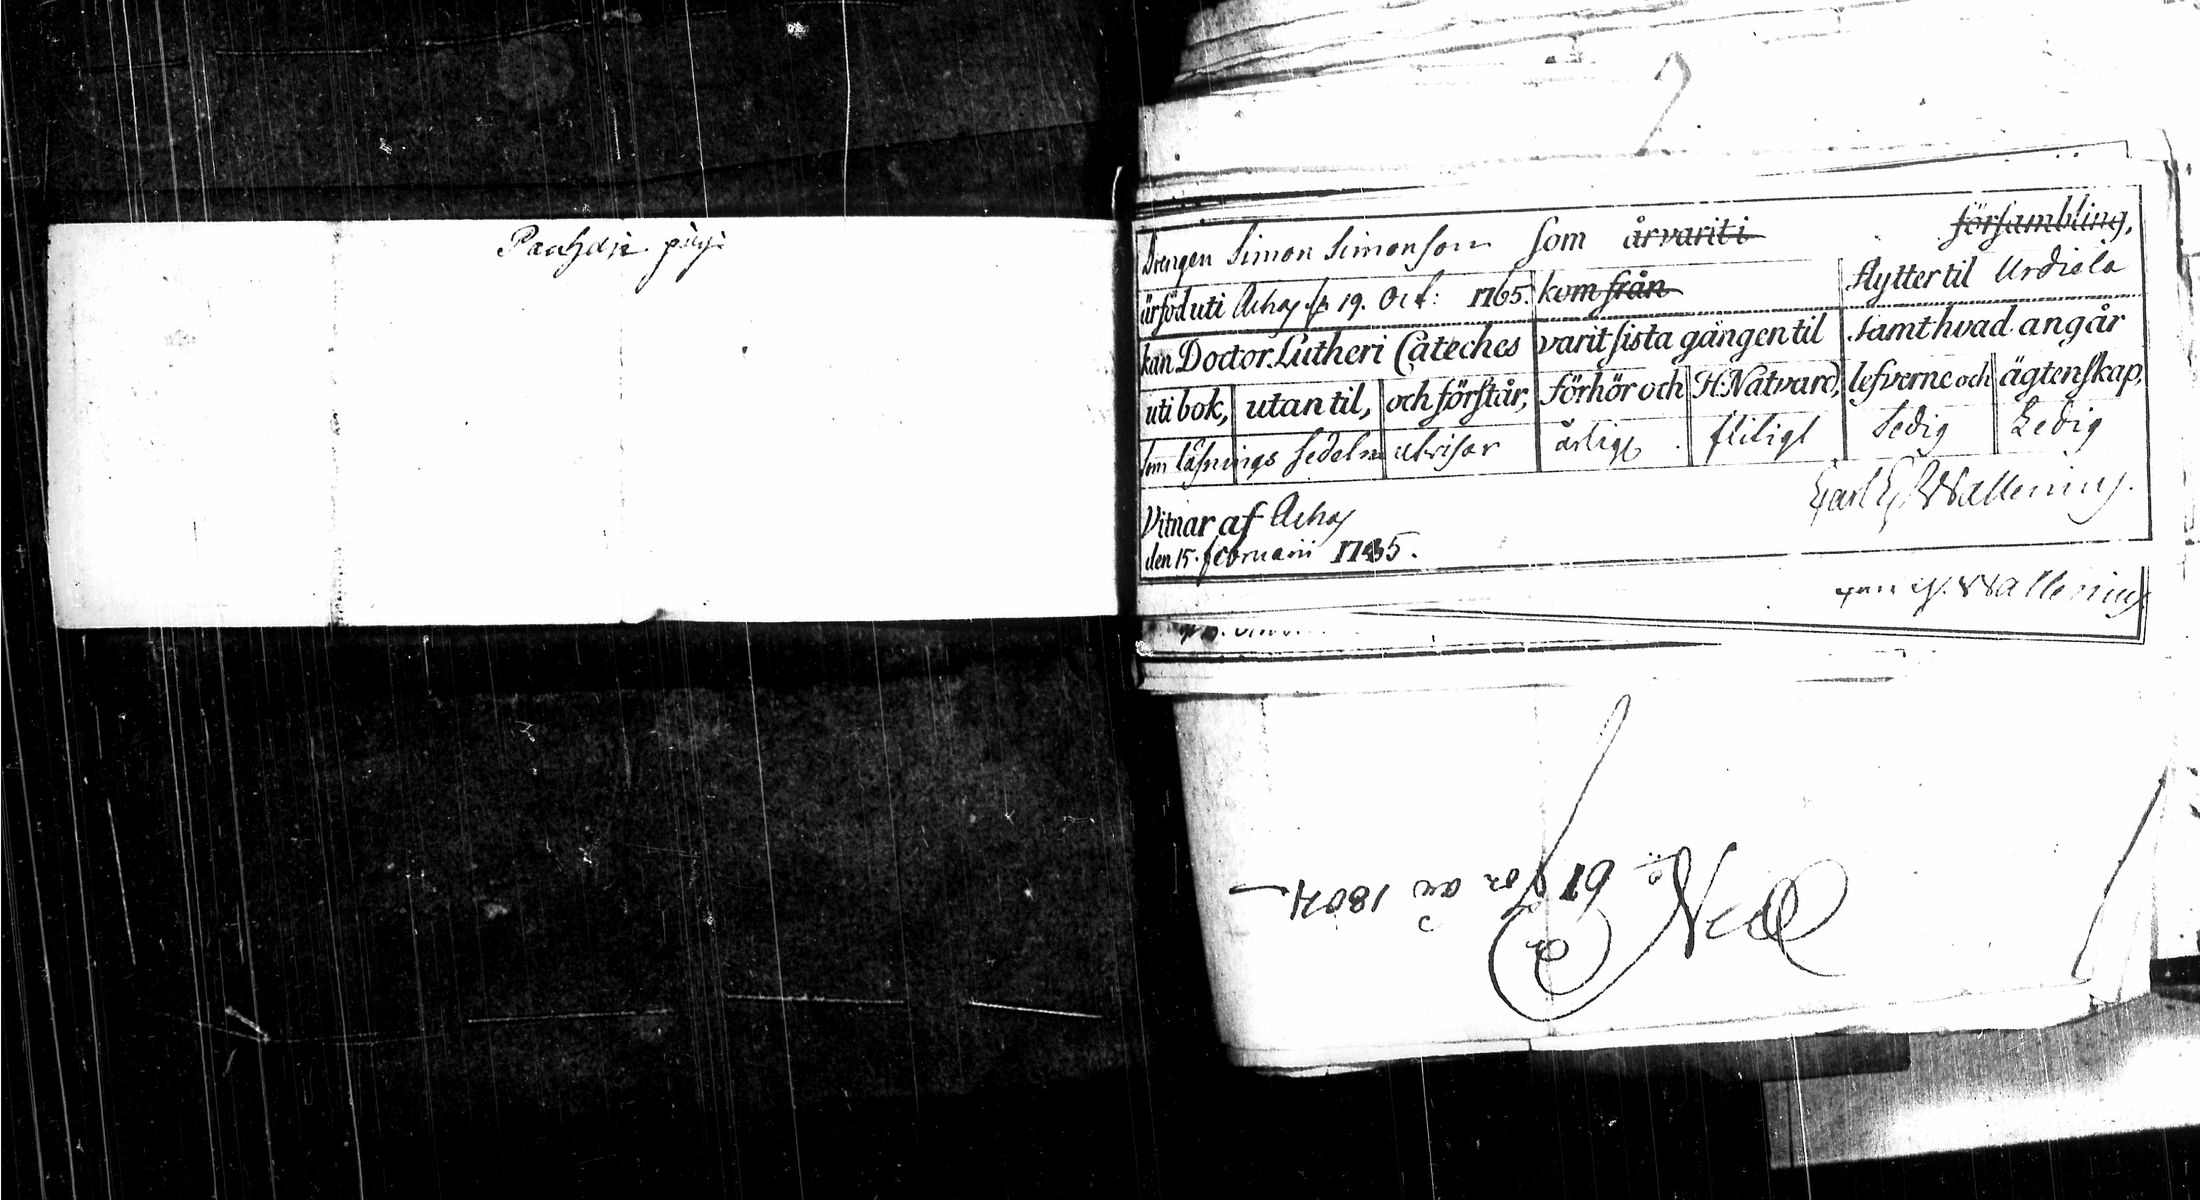 Drengen Simon Simonson som är varit i försambling,
är föd uti Achas fs 19. Oct: 1765. kom från flytter til Urdiala
kan Doctor. Lutheri Cateches varit sista gången til samt hvad angår
uti bok, utan til, och förstår, förhör och H: Natvard, lefverne och ägtenskap,
som läsnings sedeln utvisar årlige flitigt Sedig Ledig
Vitnar af Achas
den 15. februarii 17
Wallenius.
Wallenius
61
för åu 1804